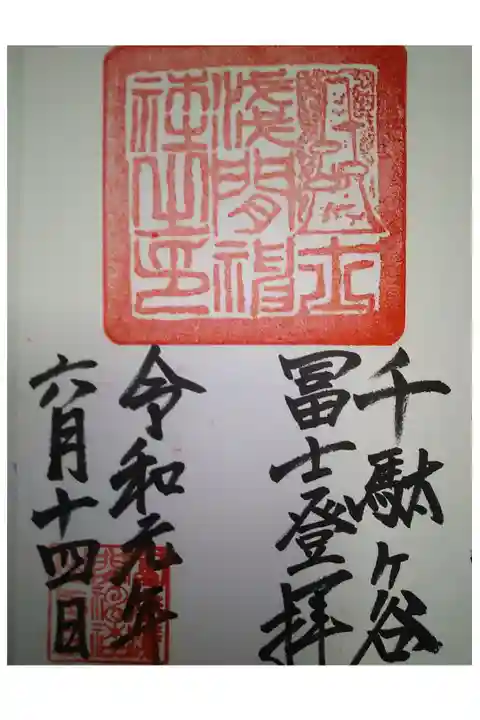 千駄ヶ谷
冨士登拝
令和元年
六月十四日
浅間神
社之印